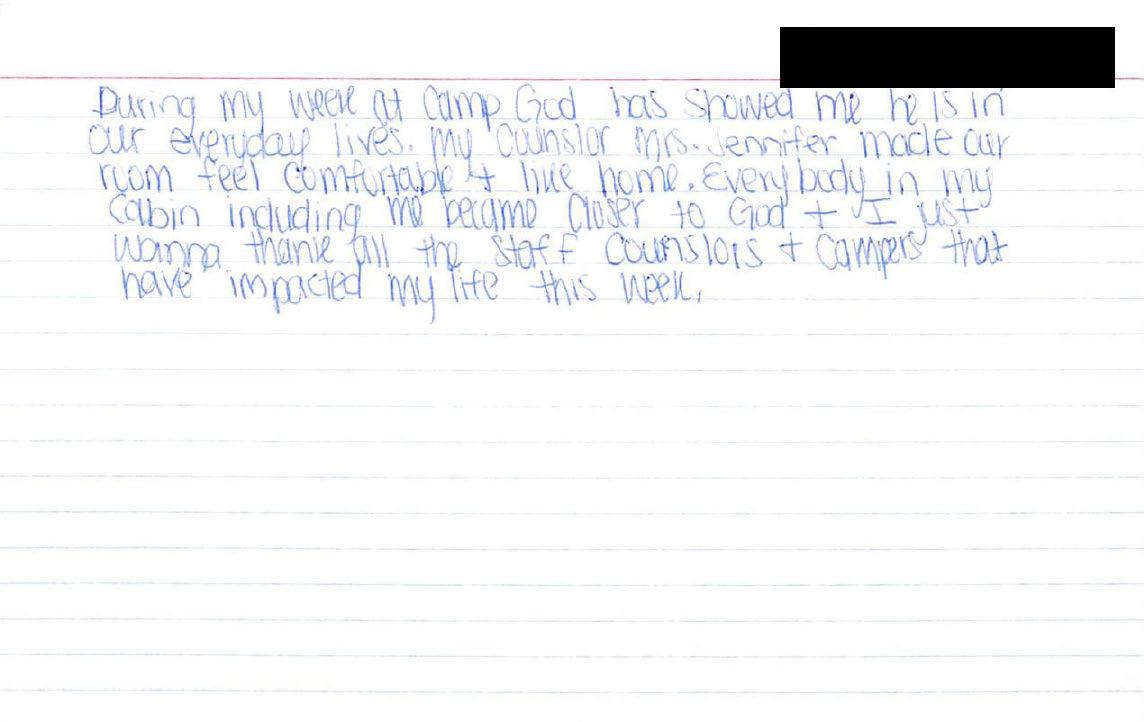 During my week at Camp God has showed me he is in
our everyday lives. My Counslor Mrs. Jennifer made our
room feel comfortable + like home. Everybody in my
Cabin including me became Closer to God + I just
wanna thank all the Staff Counslors + Campers that
have impacted my life this week.